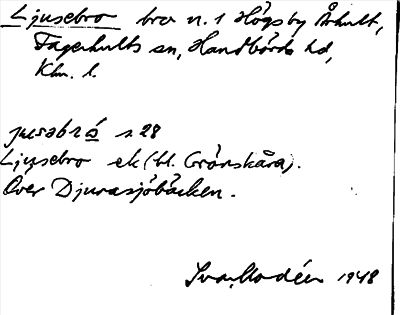 Ljusebro bro n. 1 Högsby Århult,
Fagerhults sn, Handbörds hd,
Klm. l.
jusəbró s 28
Ljusebro ek (bl. Grönskåra).
Över Djurasjöbäcken.
Ivar Modéer 1948